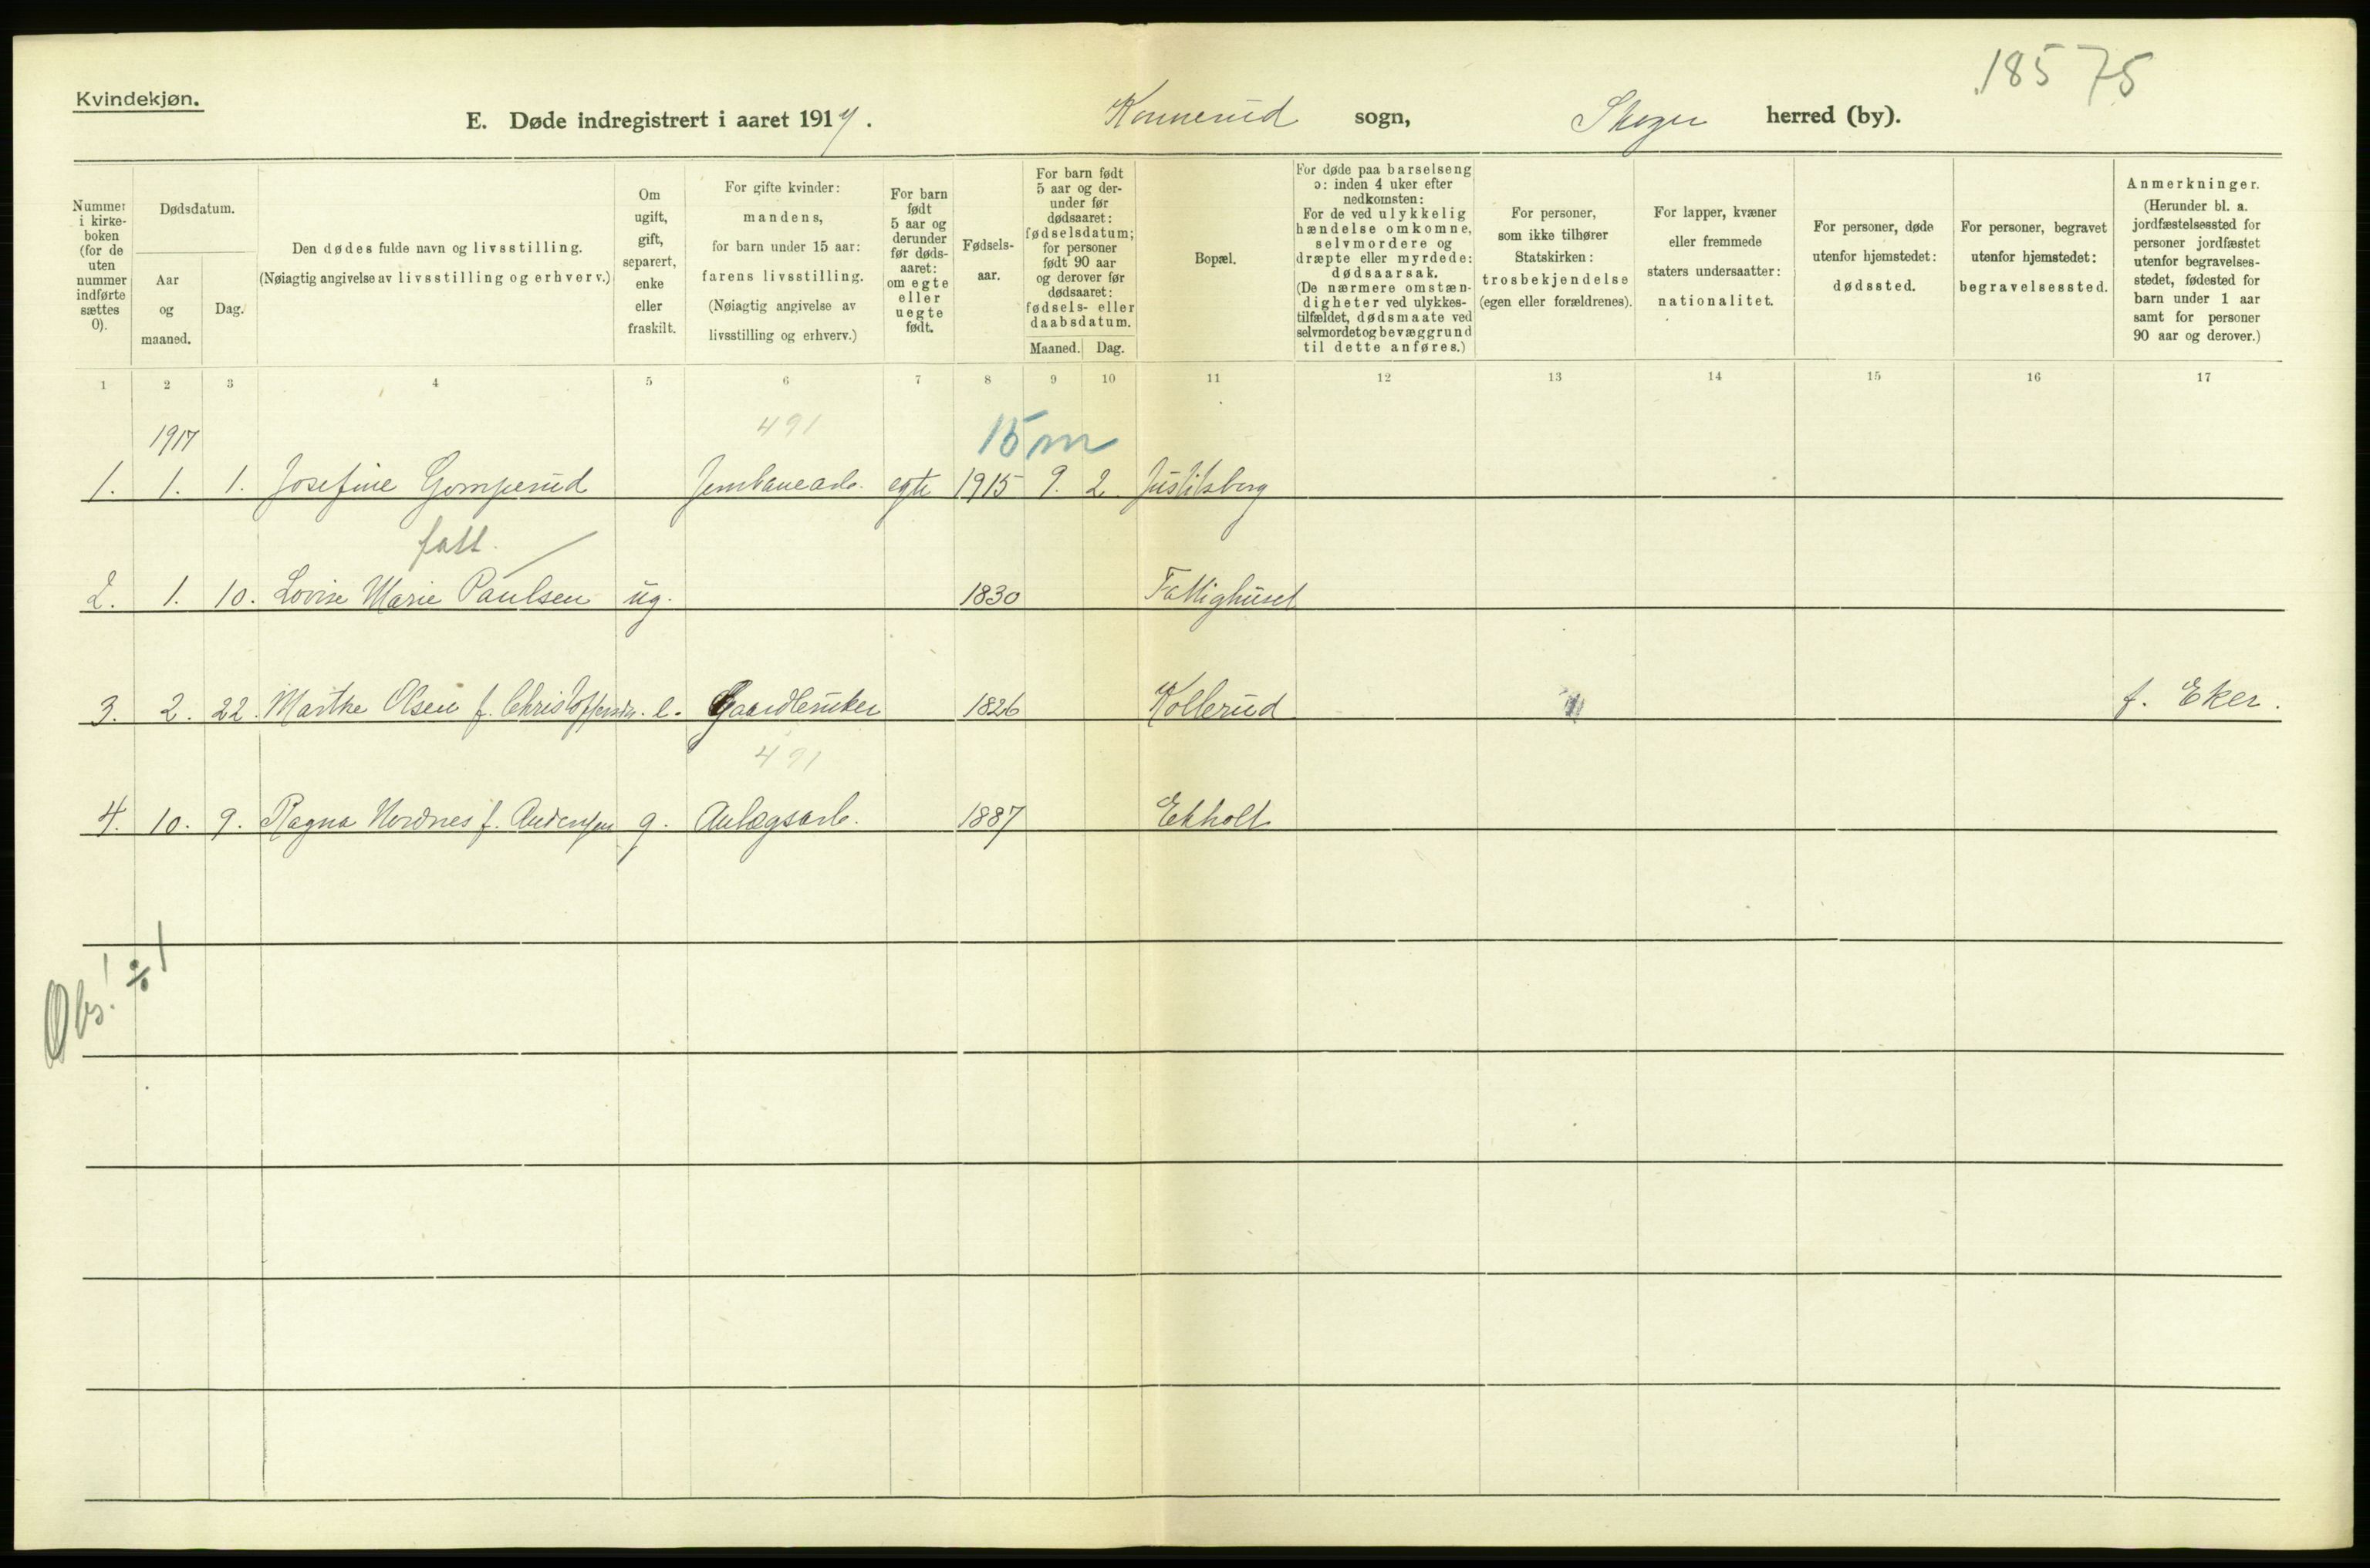 18575
Kvindekjøn.
E. Døde indregistrert i aaret 1917. Konnerud sogn, Skoger herred (by).
Nummer i kirke-boken (for de uten nummer indførte sættes 0).
Dødsdatum.
Aar og maaned.
Dag.
Den dødes fulde navn og livsstilling.
(Nøiagtig angivelse av livsstilling og erhverv.)
Om ugift, gift, separert, enke eller fraskilt.
For gifte kvinder: mandens, for barn under 15 aar: farens livsstilling. (Nøiagtig angivelse av livsstilling og erhverv.)
For barn født 5 aar og derunder før døds-aaret: om egte eller uegte født.
Fødsels-aar.
For barn født 5 aar og der-under før dødsaaret: fødselsdatum; for personer født 90 aar og derover før dødsaaret: fødsels- eller daabsdatum.
Maaned. Dag.
Bopæl.
For døde paa barselseng ɔ: inden 4 uker efter nedkomsten: For de ved ulykkelig hændelse omkomne, selvmordere og dræpte eller myrdede: dødsaarsak. (De nærmere omstæn-digheter ved ulykkes-tilfældet, dødsmaate ved selvmordet og bevæggrund til dette anføres.)
For personer, som ikke tilhører Statskirken: trosbekjendelse (egen eller forældrenes).
For lapper, kvæner eller fremmede staters undersaatter: nationalitet.
For personer, døde utenfor hjemstedet: dødssted.
For personer, begravet utenfor hjemstedet: begravelsessted.
Anmerkninger. (Herunder bl. a. jordfæstelsessted for personer jordfæstet utenfor begravelses-stedet, fødested for barn under 1 aar samt for personer 90 aar og derover.)
1 2 3 4 5 6 7 8 9 10 11 12 13 14 15 16 17
1917 491 15 m
1. 1. 1. Josefine Gomperud Jernbanearb. egte 1915 9. 2 Justitsberg
fatt.
2. 1. 10. Lovise Marie Paulsen ug. 1830 Fattighuset
3. 2. 22. Marthe Olsen f. Christoffersdr. e. Gaardbruker 1826 Kollerud f. Eker.
491
4. 10. 9. Ragna Nordnes f. Andersen g. Anlægsarb. 1887 Ekholt
Obs! ÷ 1